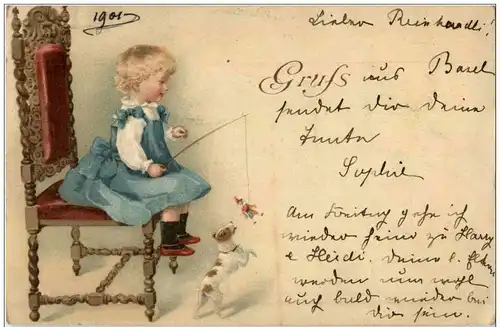 1901
Lieber Reinhardli!
Gruss aus Basel
sendet dir deine
Tante
Sophie
Am Freitag gehe ich
wieder heim zu Harry
& Heidi. Deine l. Eltern
werden nun wohl
auch bald wieder bei
dir sein.